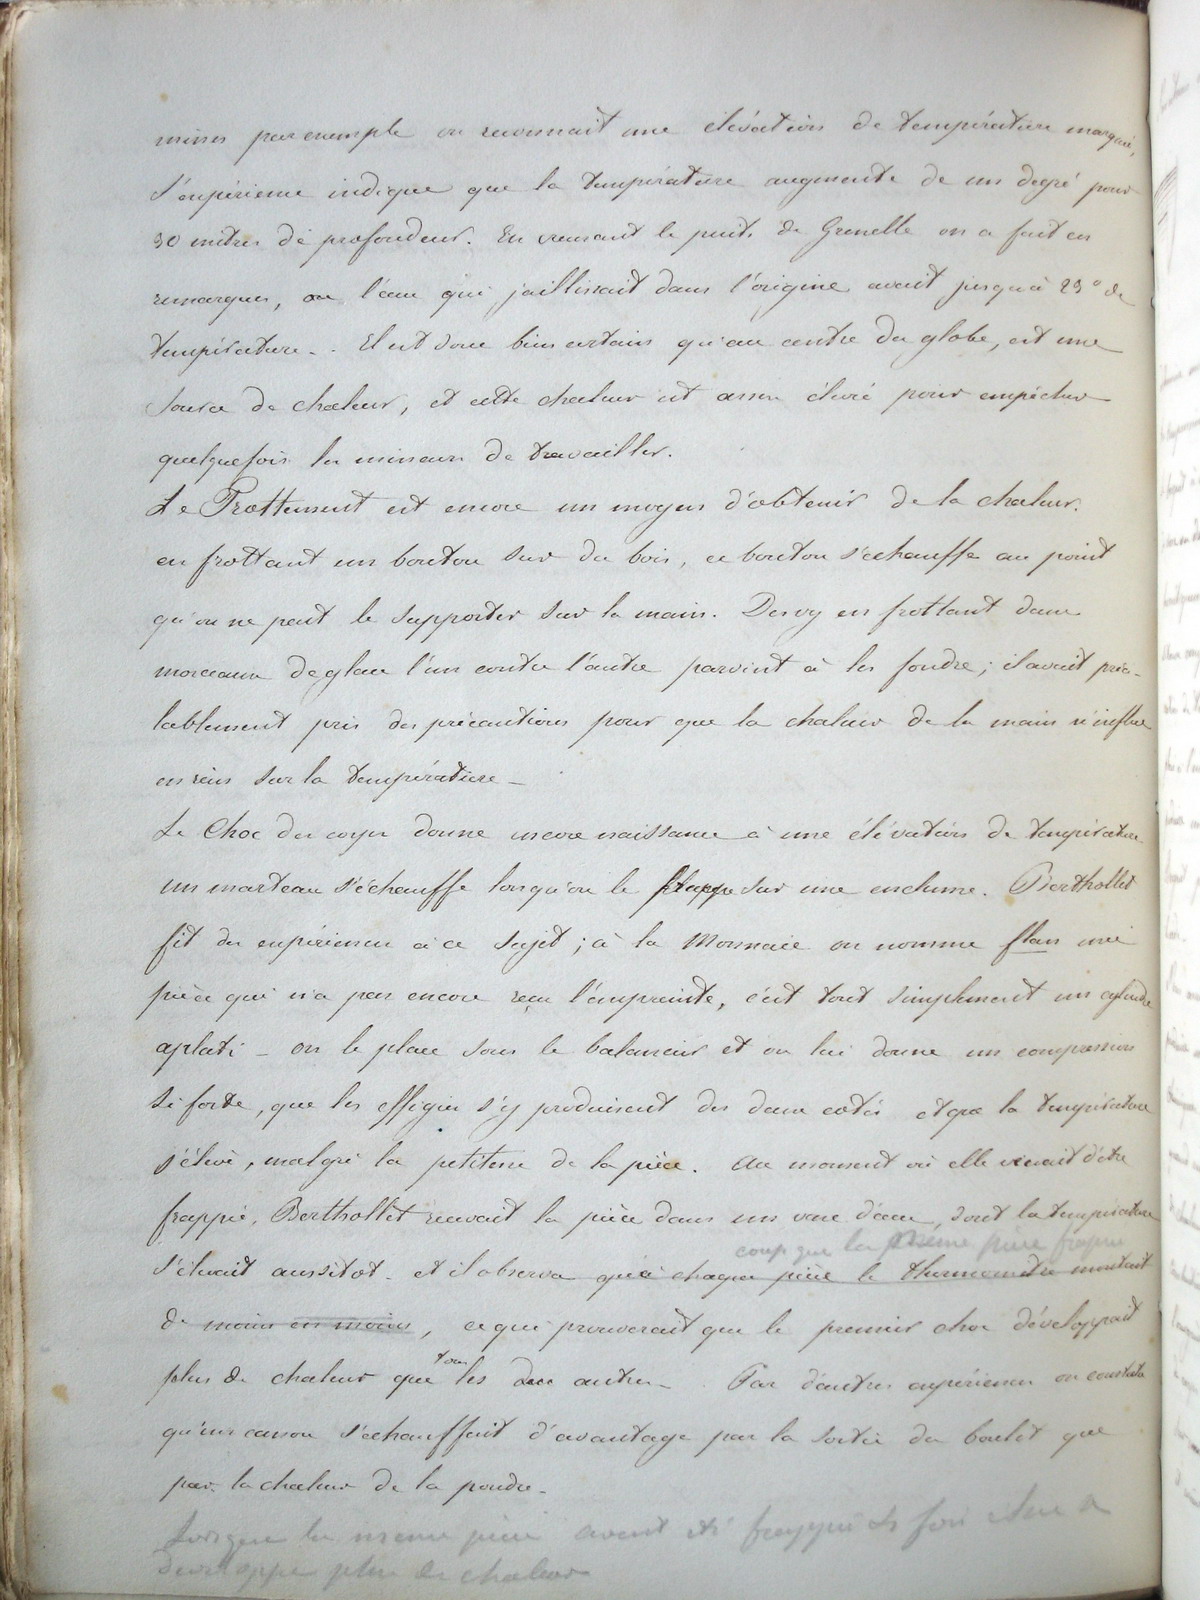 mines par exemple on reconnait une élévation de température marquée,
l'expérience indique que la température augmente de un degré pour
30 mètres de profondeur. En creusant le puits de Grenelle on a fait ces
remarques, où l'eau qui jaillissait dans l'origine avait jusqu'à 29° de
température. Il est donc bien certain qu'au centre du globe, est une
source de chaleur, et cette chaleur est assez élevée pour empêcher
quelquefois les mineurs de travailler.
Le Frottement est encore un moyen d'obtenir de la chaleur.
en frottant un bouton sur du bois, ce bouton s'échauffe au point
qu'on ne peut le supporter sur la main. Davy en frottant deux
morceaux de glace l'un contre l'autre parvint à les fondre; il avait préa-
lablement pris des précautions pour que la chaleur de la main n'influe
en rien sur la température _
Le Choc des corps donne encore naissance à une élévation de température
un marteau s'échauffe lorsqu'on le frappe sur une enclume. Berthollet
fit des expériences à ce sujet; à la Monnaie on nomme flan une
pièce qui n'a pas encore reçu l'empreinte, c'est tout simplement un cylindre
aplati _ on le place sous le balancier et on lui donne un compression
si forte, que les effigies s'y produisent des deux cotés et que la température
s'élève, malgré la petitesse de la pièce. Au moment où elle venait d'être
frappée, Berthollet recevait la pièce dans un vase d'eau, dont la température
coup que la même pièce frappée
s'élevait aussitot _ et il observa qu'à chaque pièce le thermomètre montait
de moins en moins, ce qui prouverait que le premier choc développait
plus de chaleur que tous les autres _ Par d'autres expériences on constata
qu'un canon s'échauffait d'avantage par la sortie du boulet que
par la chaleur de la poudre _
Lorsque la même pièce avait été frappée 3 fois elle
développe plus de chaleur